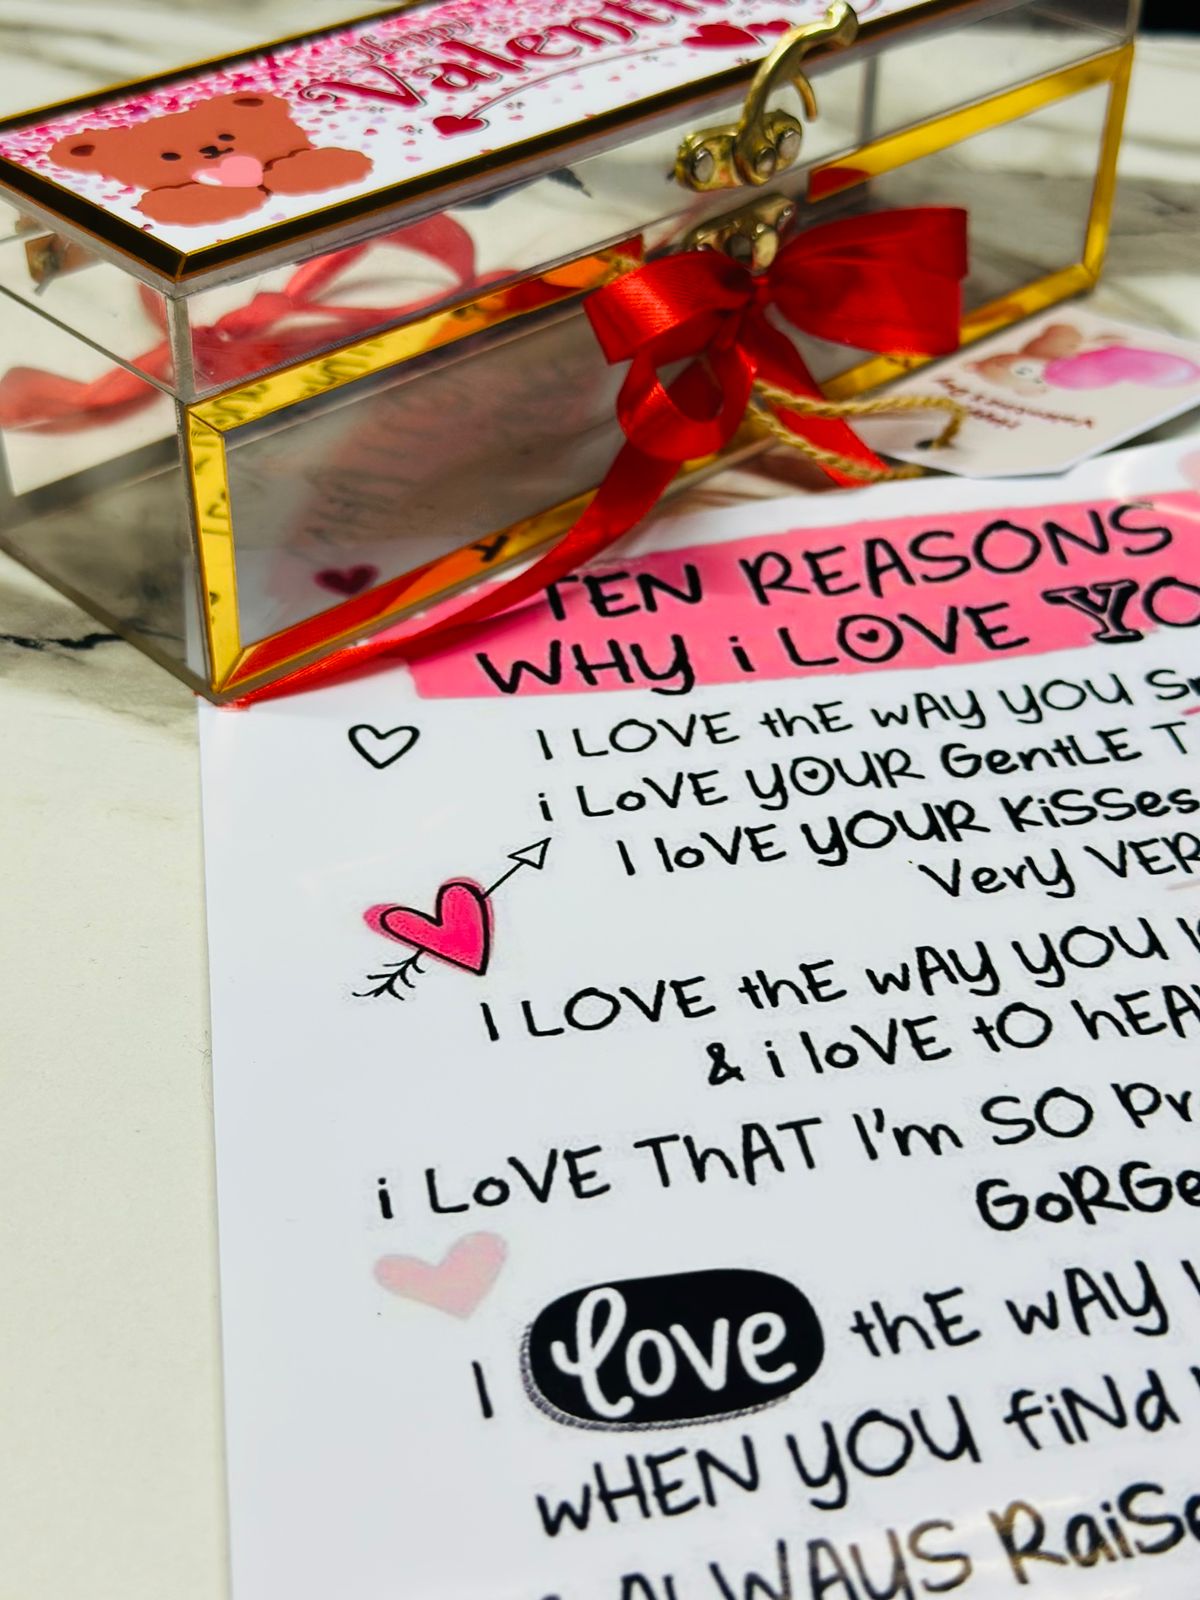 Happy
TEN REASONS
WHY i LOVE
I LOVE thE wAY YOU
i LoVE YOUR GentLE
I loVE YOUR KiSSes
VerY
I LOVE thE wAY YOU
& i loVE tO
i LoVE ThAT I'm SO
I love thE wAY
wHEN YOU fiNd
ALWAYS